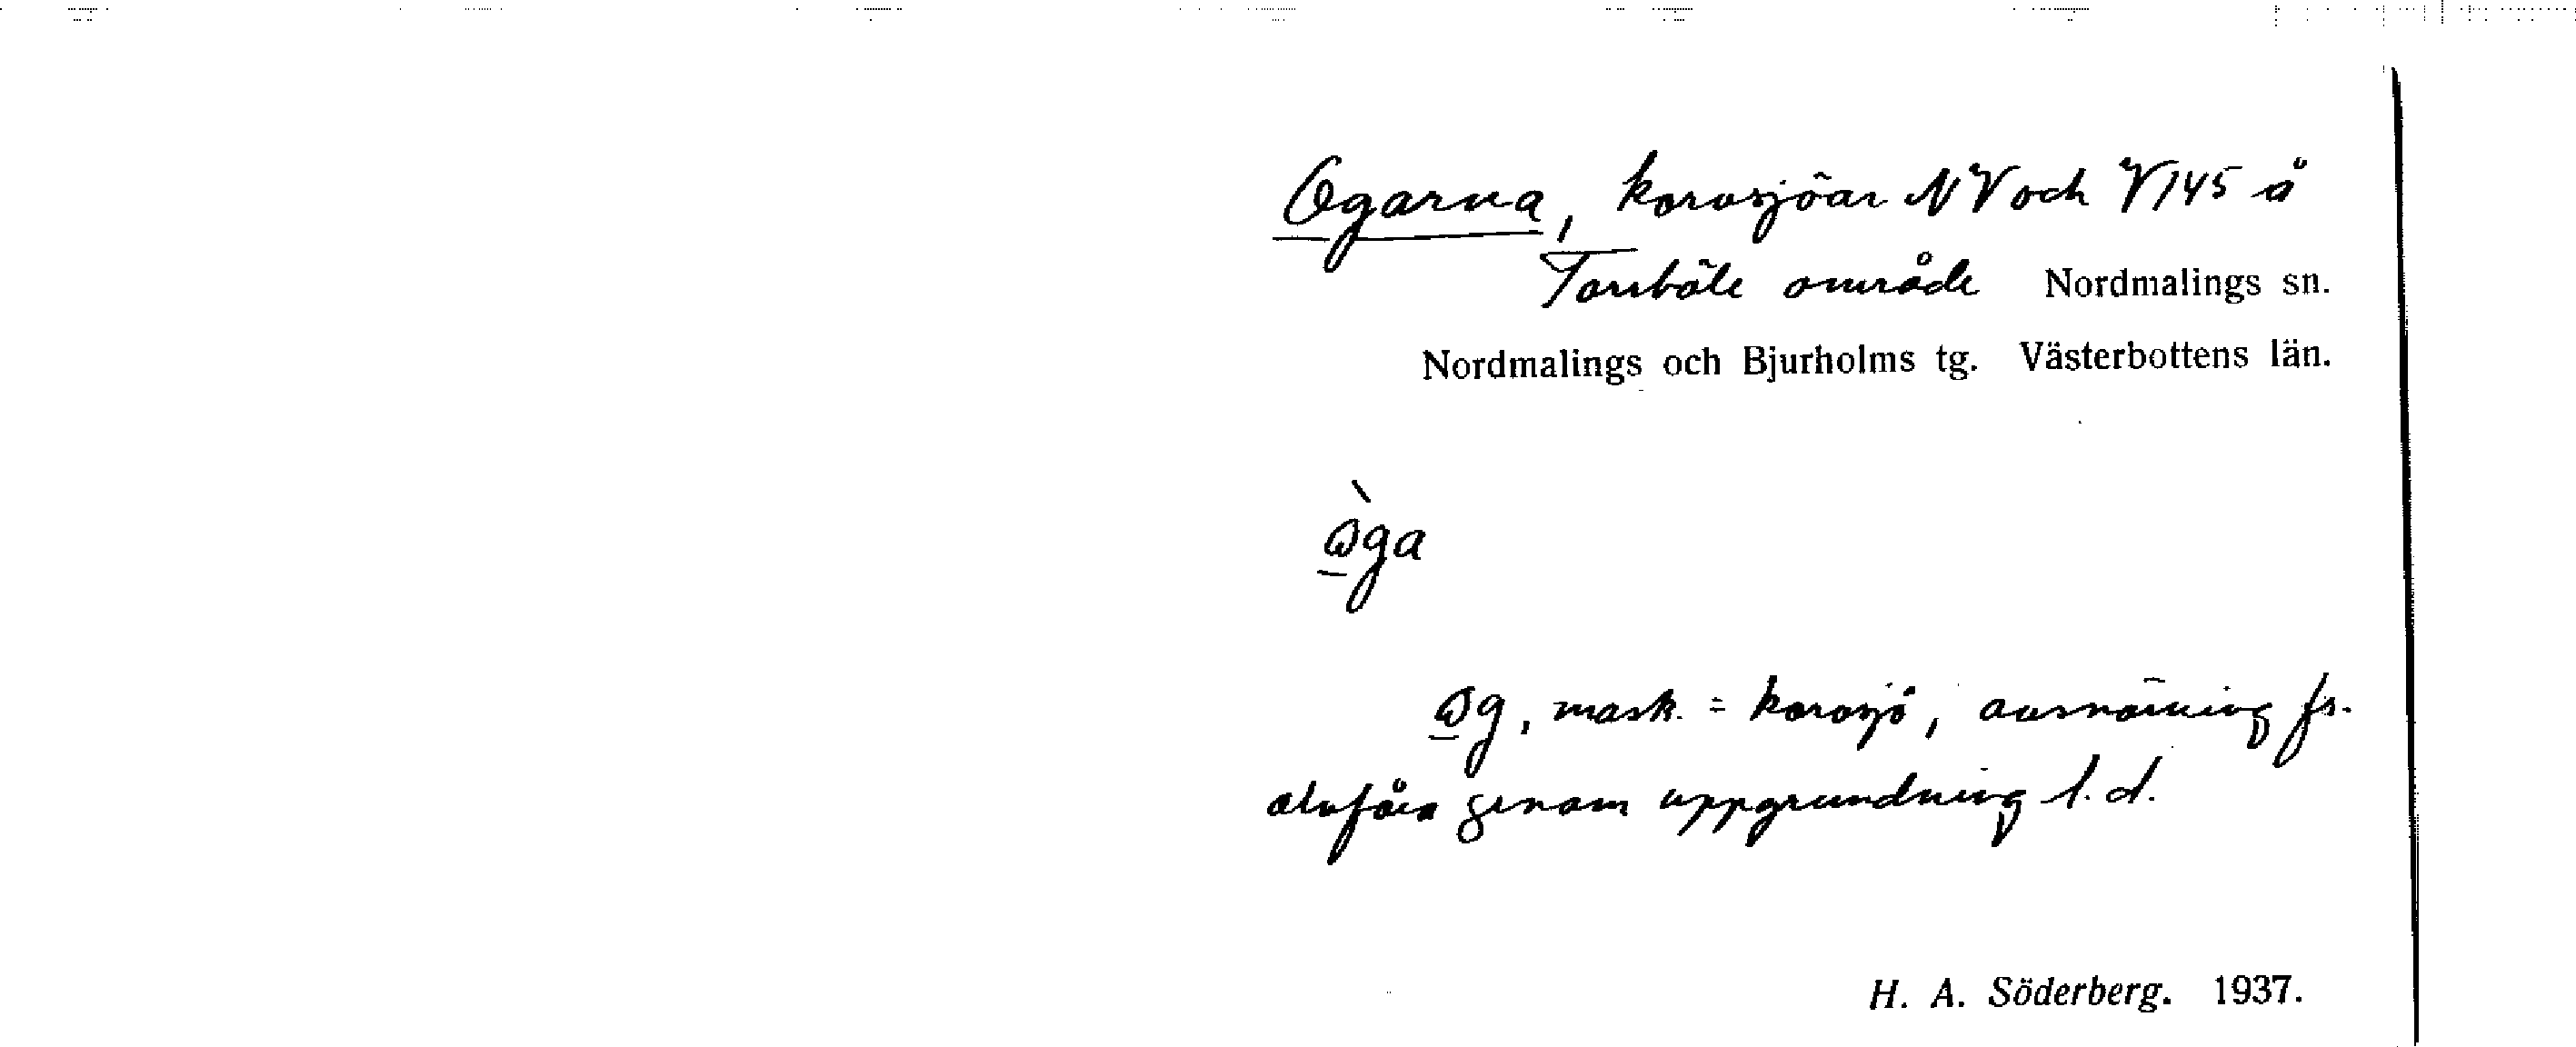 Ogarna, korvsjöar NV och V145 å
Torrböle område Nordmalings sn.
Nordmalings och Bjurholms tg. Västerbottens län.
ga
g, mask. = korvsjö, avsnörning fr.
älvfåra genom uppgrundning l. d.
H. A. Söderberg. 1937.